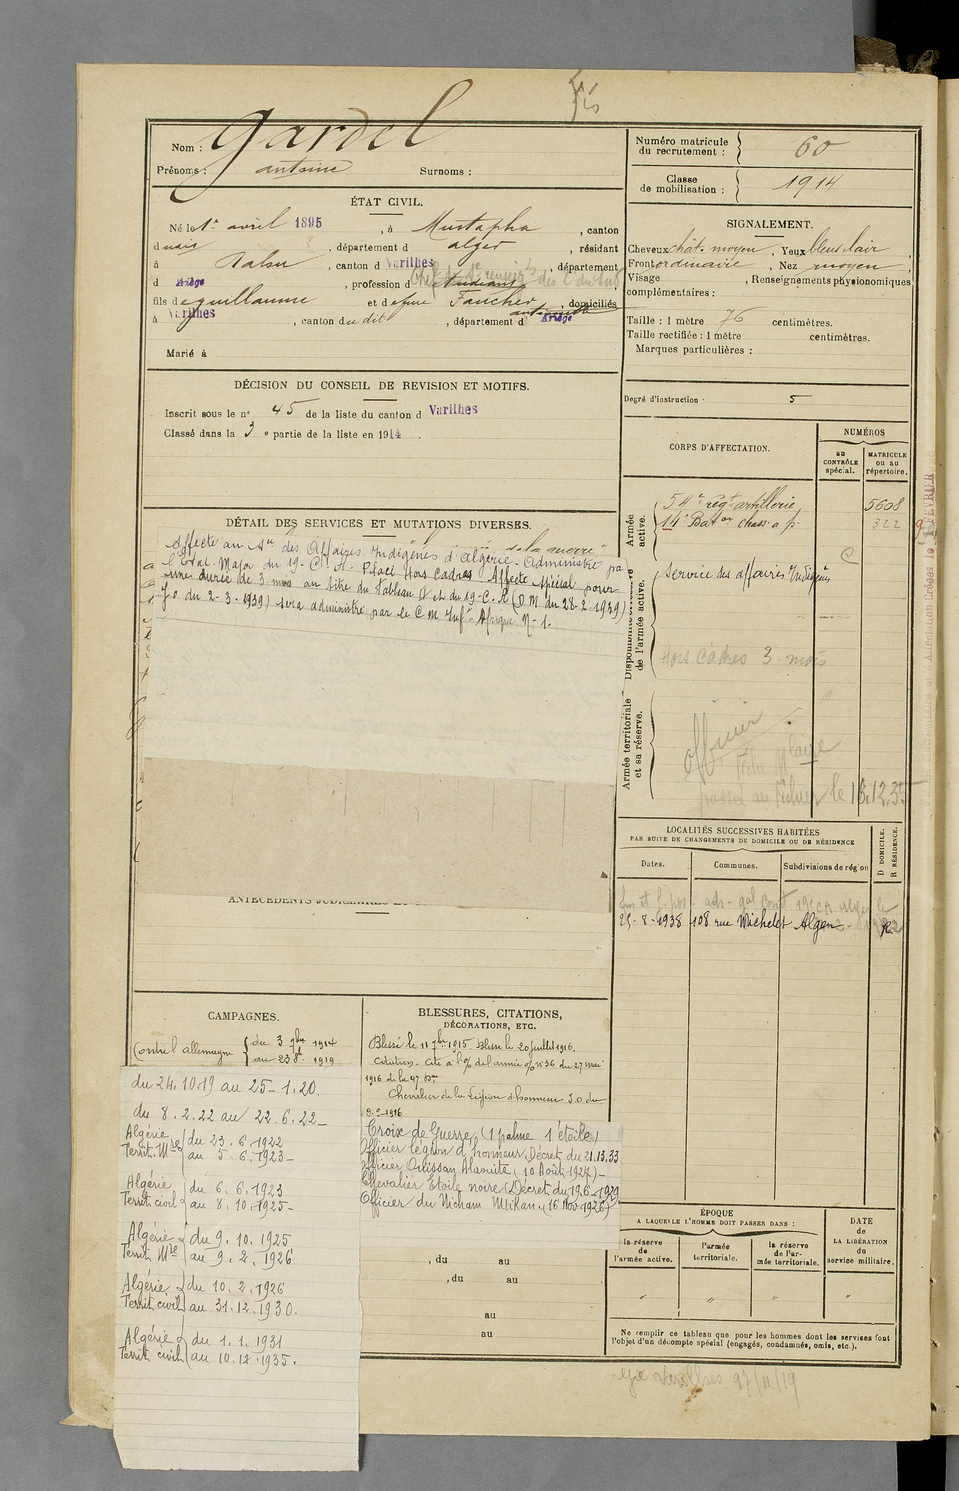 Nom : Gardel
Prénoms : antoine Surnoms :
Numéro matricule du recrutement : 60
Classe de mobilisation : 1914
ÉTAT CIVIL.
Né le 1er avril 1895, à Mustapha, canton
dudit, département d alger, résidant
à , canton d Varilhes, département
d Ariège, profession d étudiant
fils de guillaume et de feue Faucher, domiciliés
à Varilhes, canton du dit, département d Ariège
Marié à
SIGNALEMENT.
Cheveux chât. moyen, Yeux bleus clair
Front ordinaire, Nez moyen,
Visage , Renseignements physionomiques
complémentaires :
Taille : 1 mètre 76 centimètres.
Taille rectifiée : 1 mètre centimètres.
Marques particulières :
Degré d'instruction : 5
DÉCISION DU CONSEIL DE REVISION ET MOTIFS.
Inscrit sous le n° 45 de la liste du canton d Varilhes
Classé dans la 3 e partie de la liste en 1914.
CORPS D'AFFECTATION.
NUMÉROS
au CONTRÔLE spécial.
MATRICULE ou au répertoire.
Armée active.
régt artillerie 5608
14e Baton chass. a p. 322
Disponibilité et réserve de l'armée active.
Service des affaires Indigènes
Hors cadres 3 mois
Armée territoriale et sa réserve.
officier
passé au fichier le 13.12.35
DÉTAIL DES SERVICES ET MUTATIONS DIVERSES.
Affecté au Sce des Affaires Indigènes d'Algérie. Administré pa
l'Etat Major du 19e C. A. Placé Hors Cadres Affecté spécial pour
une durée de 3 mois au titre du Tableau du 19e C. A (D M du 28-2-1939)
J.O du 2-3-1939) sera administré par le C M Infie Afrique N° 1.
ANTÉCÉDENTS JUDICIAIRES
LOCALITÉS SUCCESSIVES HABITÉES
PAR SUITE DE CHANGEMENTS DE DOMICILE OU DE RÉSIDENCE
Dates. Communes. Subdivisions de région
D DOMICILE. R RÉSIDENCE.
25-8-1938 108 rue Michelet Alger R
CAMPAGNES.
Contre l'allemagne { du 3 7bre 1914
au 23 8bre 1919
du 24.10.19 au 25-1.20.
du 8.2.22 au 22.6.22-
Algérie Territ. Mre { du 23.6.1922
au 5.6.1923-
Algérie Territ. civil { du 6.6.1923
au 8.10.1925-
Algérie Territ. Mre { du 9.10.1925
au 9.2.1926
Algérie Territ. civil { du 10.2.1926
au 31.12.1930.
Algérie Territ. civil { du 1.1.1931
au 10.12.1935.
BLESSURES, CITATIONS,
DÉCORATIONS, ETC.
Blessé le 11 7bre 1915. Blessé le 20 juillet 1916.
Citation. Cité à l'o/ de l'armée o/ n° 36 du 27 mai
1916 de la 47 Don
Chevalier de la Légion d'honneur J.O du
9-2-1916
Croix de Guerre, (1 palme 1 étoile)
Officier Légion d'Honneur Décret du 21.12.33
Officier Ouissam Alaouite (10 Août 1924)-
Chevalier Etoile noire (Décret du 19.6-1929
Officier du Nicham Iftikar. (16 Nov. 1926)
, du au
, du au
au
au
ÉPOQUE
A LAQUELLE L'HOMME DOIT PASSER DANS :
la réserve de l'armée active.
l'armée territoriale.
la réserve de l'armée territoriale.
DATE de LA LIBÉRATION du service militaire.
" " " "
Ne remplir ce tableau que pour les hommes dont les services font
l'objet d'un décompte spécial (engagés, condamnés, omis, etc.).